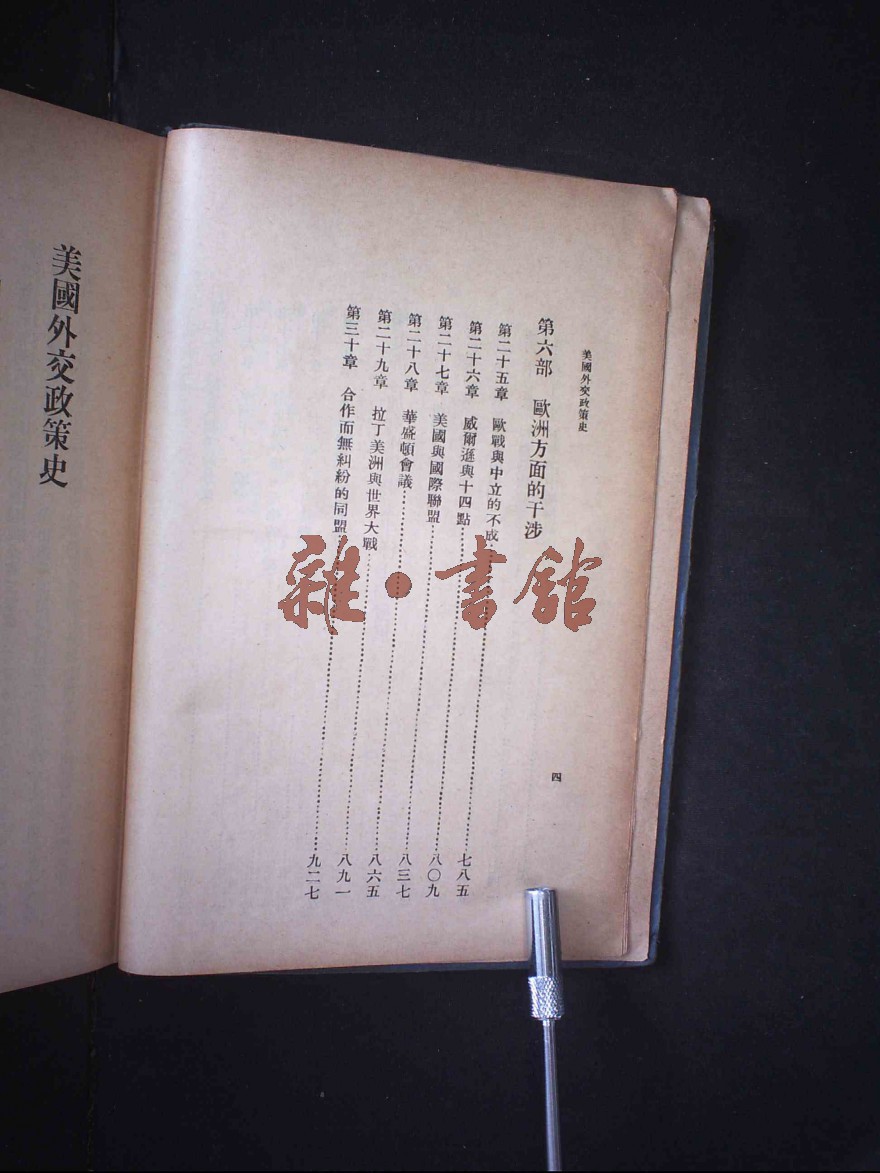 美國外交政策史
四
第六部　歐洲方面的干涉
第二十五章　歐戰與中立的不成……七八五
第二十六章　威爾遜與十四點……八〇九
第二十七章　美國與國際聯盟……八三七
第二十八章　華盛頓會議……八六五
第二十九章　拉丁美洲與世界大戰……八九一
第三十章　合作而無糾紛的同盟……九二七
美國外交政策史
雜·書館